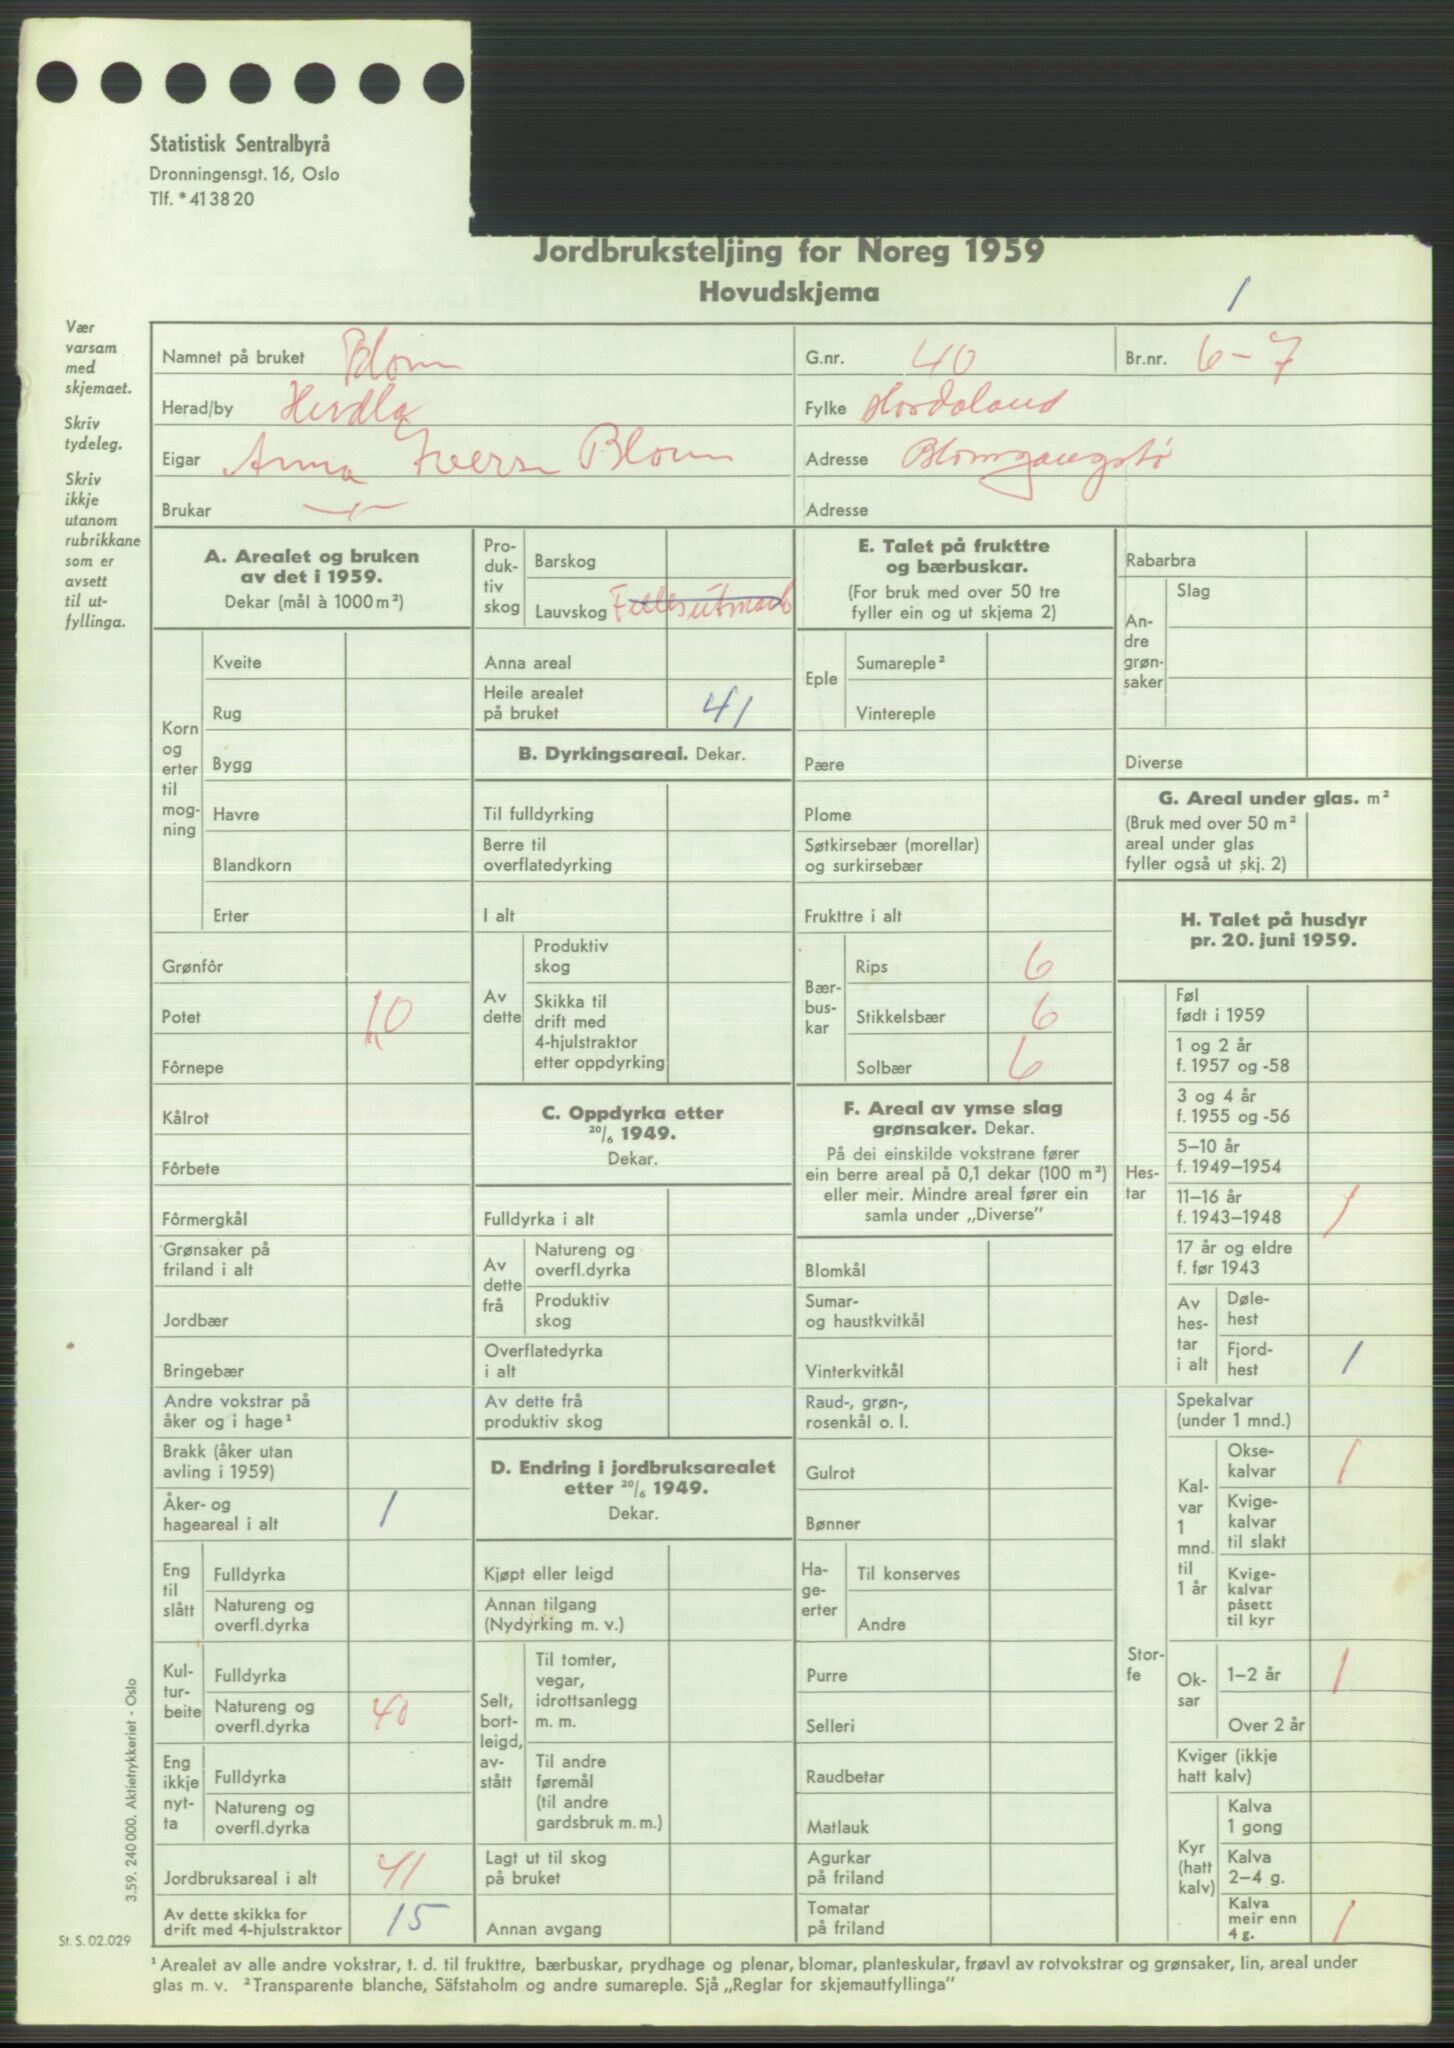 Statistisk Sentralbyrå
Dronningensgt. 16, Oslo
Tlf. * 41 38 20
Jordbruksteljing for Noreg 1959
Hovudskjema
1
Vær
varsam
med
skjemaet.
Skriv
tydeleg.
Skriv
ikkje
utanom
rubrikkane
som er
avsett
til ut-
fyllinga.
Namnet på bruket Blom
G.nr. 40
Br.nr. 6-7
Herad/by Herdla
Fylke Hordaland
Eigar Anna Iversen Blom
Adresse Blomgangstø
Brukar -"-
Adresse
A. Arealet og bruken
av det i 1959.
Dekar (mål à 1000 m²)
Korn
og
erter
til
mog-
ning
Kveite
Rug
Bygg
Havre
Blandkorn
Erter
Grønfôr
Potet 1,0
Fôrnepe
Kålrot
Fôrbete
Fôrmergkål
Grønsaker på
friland i alt
Jordbær
Bringebær
Andre vokstrar på
åker og i hage¹
Brakk (åker utan
avling i 1959)
Åker- og
hageareal i alt 1
Eng
til
slått
Fulldyrka
Natureng og
overfl.dyrka
Kul-
tur-
beite
Fulldyrka
Natureng og
overfl.dyrka 40
Eng
ikkje
nyt-
ta
Fulldyrka
Natureng og
overfl.dyrka
Jordbruksareal i alt 41
Av dette skikka for
drift med 4-hjulstraktor 15
Pro-
duk-
tiv
skog
Barskog
Lauvskog Fellesutmark
Anna areal
Heile arealet
på bruket 41
B. Dyrkingsareal. Dekar.
Til fulldyrking
Berre til
overflatedyrking
I alt
Av
dette
Produktiv
skog
Skikka til
drift med
4-hjulstraktor
etter oppdyrking
C. Oppdyrka etter
20/6 1949.
Dekar.
Fulldyrka i alt
Av
dette
frå
Natureng og
overfl.dyrka
Produktiv
skog
Overflatedyrka
i alt
Av dette frå
produktiv skog
D. Endring i jordbruksarealet
etter 20/6 1949.
Dekar.
Kjøpt eller leigd
Annan tilgang
(Nydyrking m. v.)
Selt,
bort-
leigd,
av-
stått
Til tomter,
vegar,
idrottsanlegg
m. m.
Til andre
føremål
(til andre
gardsbruk m. m.)
Lagt ut til skog
på bruket
Annan avgang
E. Talet på frukttre
og bærbuskar.
(For bruk med over 50 tre
fyller ein og ut skjema 2)
Eple
Sumareple²
Vintereple
Pære
Plome
Søtkirsebær (morellar)
og surkirsebær
Frukttre i alt
Bær-
bus-
kar
Rips 6
Stikkelsbær 6
Solbær 6
F. Areal av ymse slag
grønsaker. Dekar.
På dei einskilde vokstrane fører
ein berre areal på 0,1 dekar (100 m²)
eller meir. Mindre areal fører ein
samla under „Diverse”
Blomkål
Sumar-
og haustkvitkål
Vinterkvitkål
Raud-, grøn-,
rosenkål o. l.
Gulrot
Bønner
Ha-
ge-
erter
Til konserves
Andre
Purre
Selleri
Raudbetar
Matlauk
Agurkar
på friland
Tomatar
på friland
Rabarbra
An-
dre
grøn-
saker
Slag
Diverse
G. Areal under glas. m²
(Bruk med over 50 m²
areal under glas
fyller også ut skj. 2)
H. Talet på husdyr
pr. 20. juni 1959.
Hes-
tar
Føl
født i 1959
1 og 2 år
f. 1957 og -58
3 og 4 år
f. 1955 og -56
5–10 år
f. 1949–1954
11–16 år
f. 1943–1948 1
17 år og eldre
f. før 1943
Av
hes-
tar
i alt
Døle-
hest
Fjord-
hest 1
Stor-
fe
Spekalvar
(under 1 mnd.)
Kal-
var
1
mnd.
til
1 år
Okse-
kalvar 1
Kvige-
kalvar
til slakt
Kvige-
kalvar
påsett
til kyr
Ok-
sar
1–2 år 1
Over 2 år
Kviger (ikkje
hatt kalv)
Kyr
(hatt
kalv)
Kalva
1 gong
Kalva
2–4 g.
Kalva
meir enn
4 g. 1
3.59. 240 000. Aktietrykkeriet - Oslo
St. S. 02.029
¹ Arealet av alle andre vokstrar, t. d. til frukttre, bærbuskar, prydhage og plenar, blomar, planteskular, frøavl av rotvokstrar og grønsaker, lin, areal under
glas m. v. ² Transparente blanche, Säfstaholm og andre sumareple. Sjå „Reglar for skjemautfyllinga”